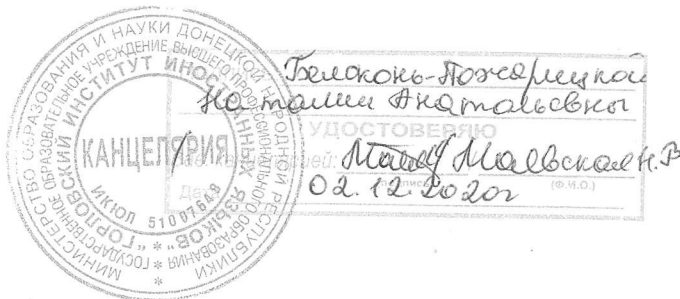 МИНИСТЕРСТВО ОБРАЗОВАНИЯ И НАУКИ ДОНЕЦКОЙ НАРОДНОЙ РЕСПУБЛИКИ
ГОСУДАРСТВЕННОЕ ОБРАЗОВАТЕЛЬНОЕ УЧРЕЖДЕНИЕ ВЫСШЕГО ПРОФЕССИОНАЛЬНОГО ОБРАЗОВАНИЯ
"ГОРЛОВСКИЙ ИНСТИТУТ ИНОСТРАННЫХ ЯЗЫКОВ"
ИКЮЛ 51007648
КАНЦЕЛЯРИЯ
Белоконь-Пожарицкой
Наталии Анатольевны
УДОСТОВЕРЯЮ
Маевская Н.В
(Ф.И.О.)
02.12.2020г